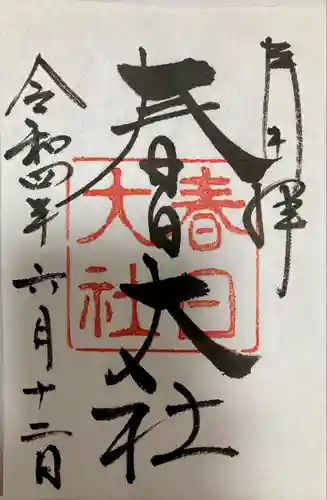 奉拝
春日大社
令和四年六月十二日
春日
大社